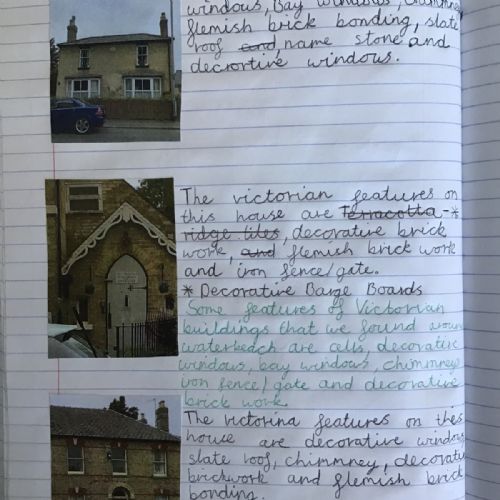 windows, Bay windows, chimney
flemish brick bonding, slate
roof and, name stone and
decrortive windows.
The victorian features on
this house are Terracotta -*
ridge tiles, decorative brick
work, and flemish brick work
and iron fence/gate.
* Decorative Barge Boards
Some features of Victorian
buildings that we found aroun
waterbeach are cells, decorative
windows, bay windows, chimmney
iron fence/gate and decorative
brick work.
The victorina features on this
house are decorative window
slate roof, chimmney, decorativ
brickwork and flemish brick
bonding.